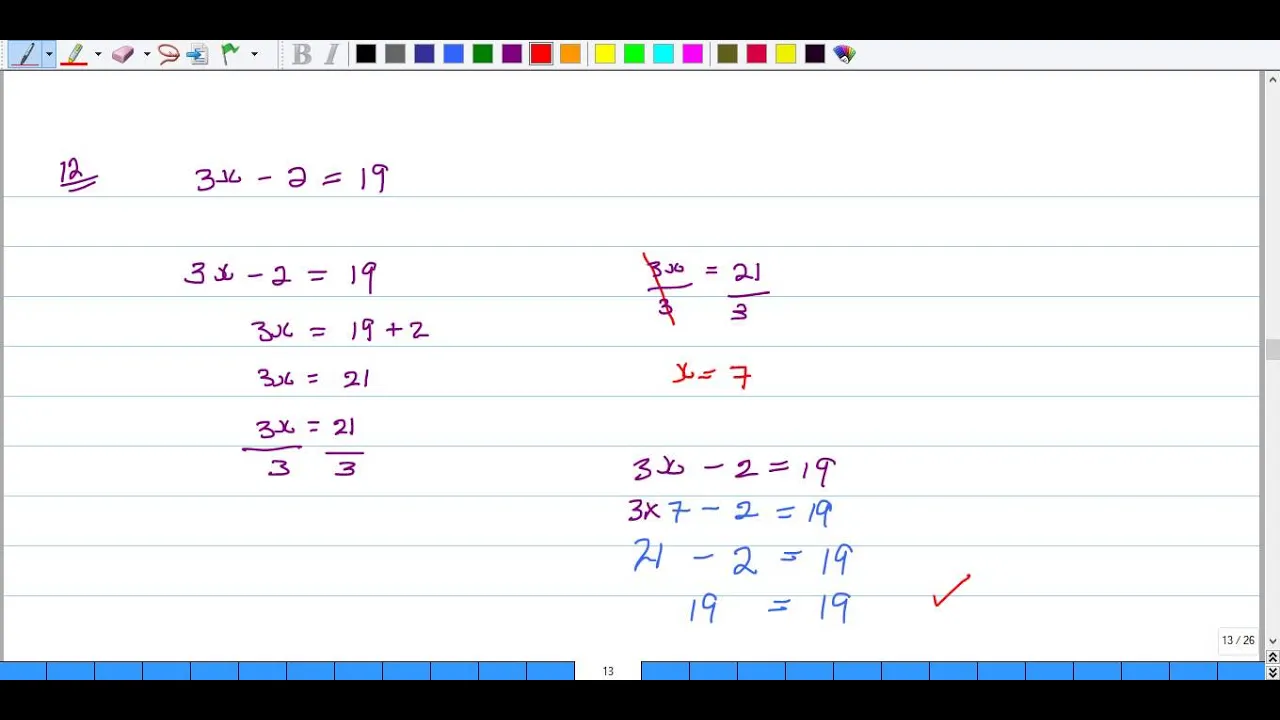 B I
12
3x - 2 = 19
3x - 2 = 19
3x = 19 + 2
3x = 21
3x/3 = 21/3
3x/3 = 21/3
x = 7
3x - 2 = 19
3 x 7 - 2 = 19
21 - 2 = 19
19 = 19 ✓
13 / 26
13